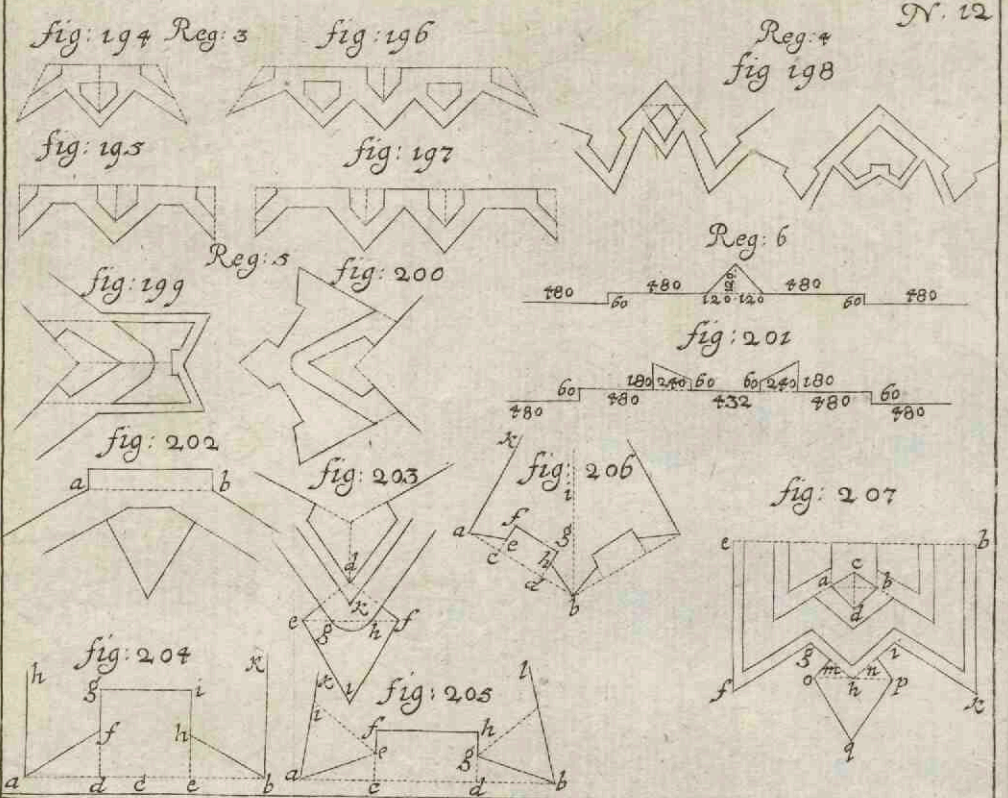 N. 12
fig: 194 Reg: 3 fig: 196
Reg: 4
fig 198
fig: 195 fig: 197
Reg: 5
fig: 199 fig: 200
Reg: 6
480 60 480 120 120 480 60 480
fig: 201
480 60 480 180 240 60 432 60 240 180 480 60 480
fig: 202
a b
fig: 203
d
k
e g h f
i
fig: 206
k i
a f g
c e h
d
b
fig: 207
e b
c
a b
d
g i
f m n k
o h p
q
fig: 204
h k
g i
f h
a d c e b
fig: 205
k l
i
f h
e g
a c d b